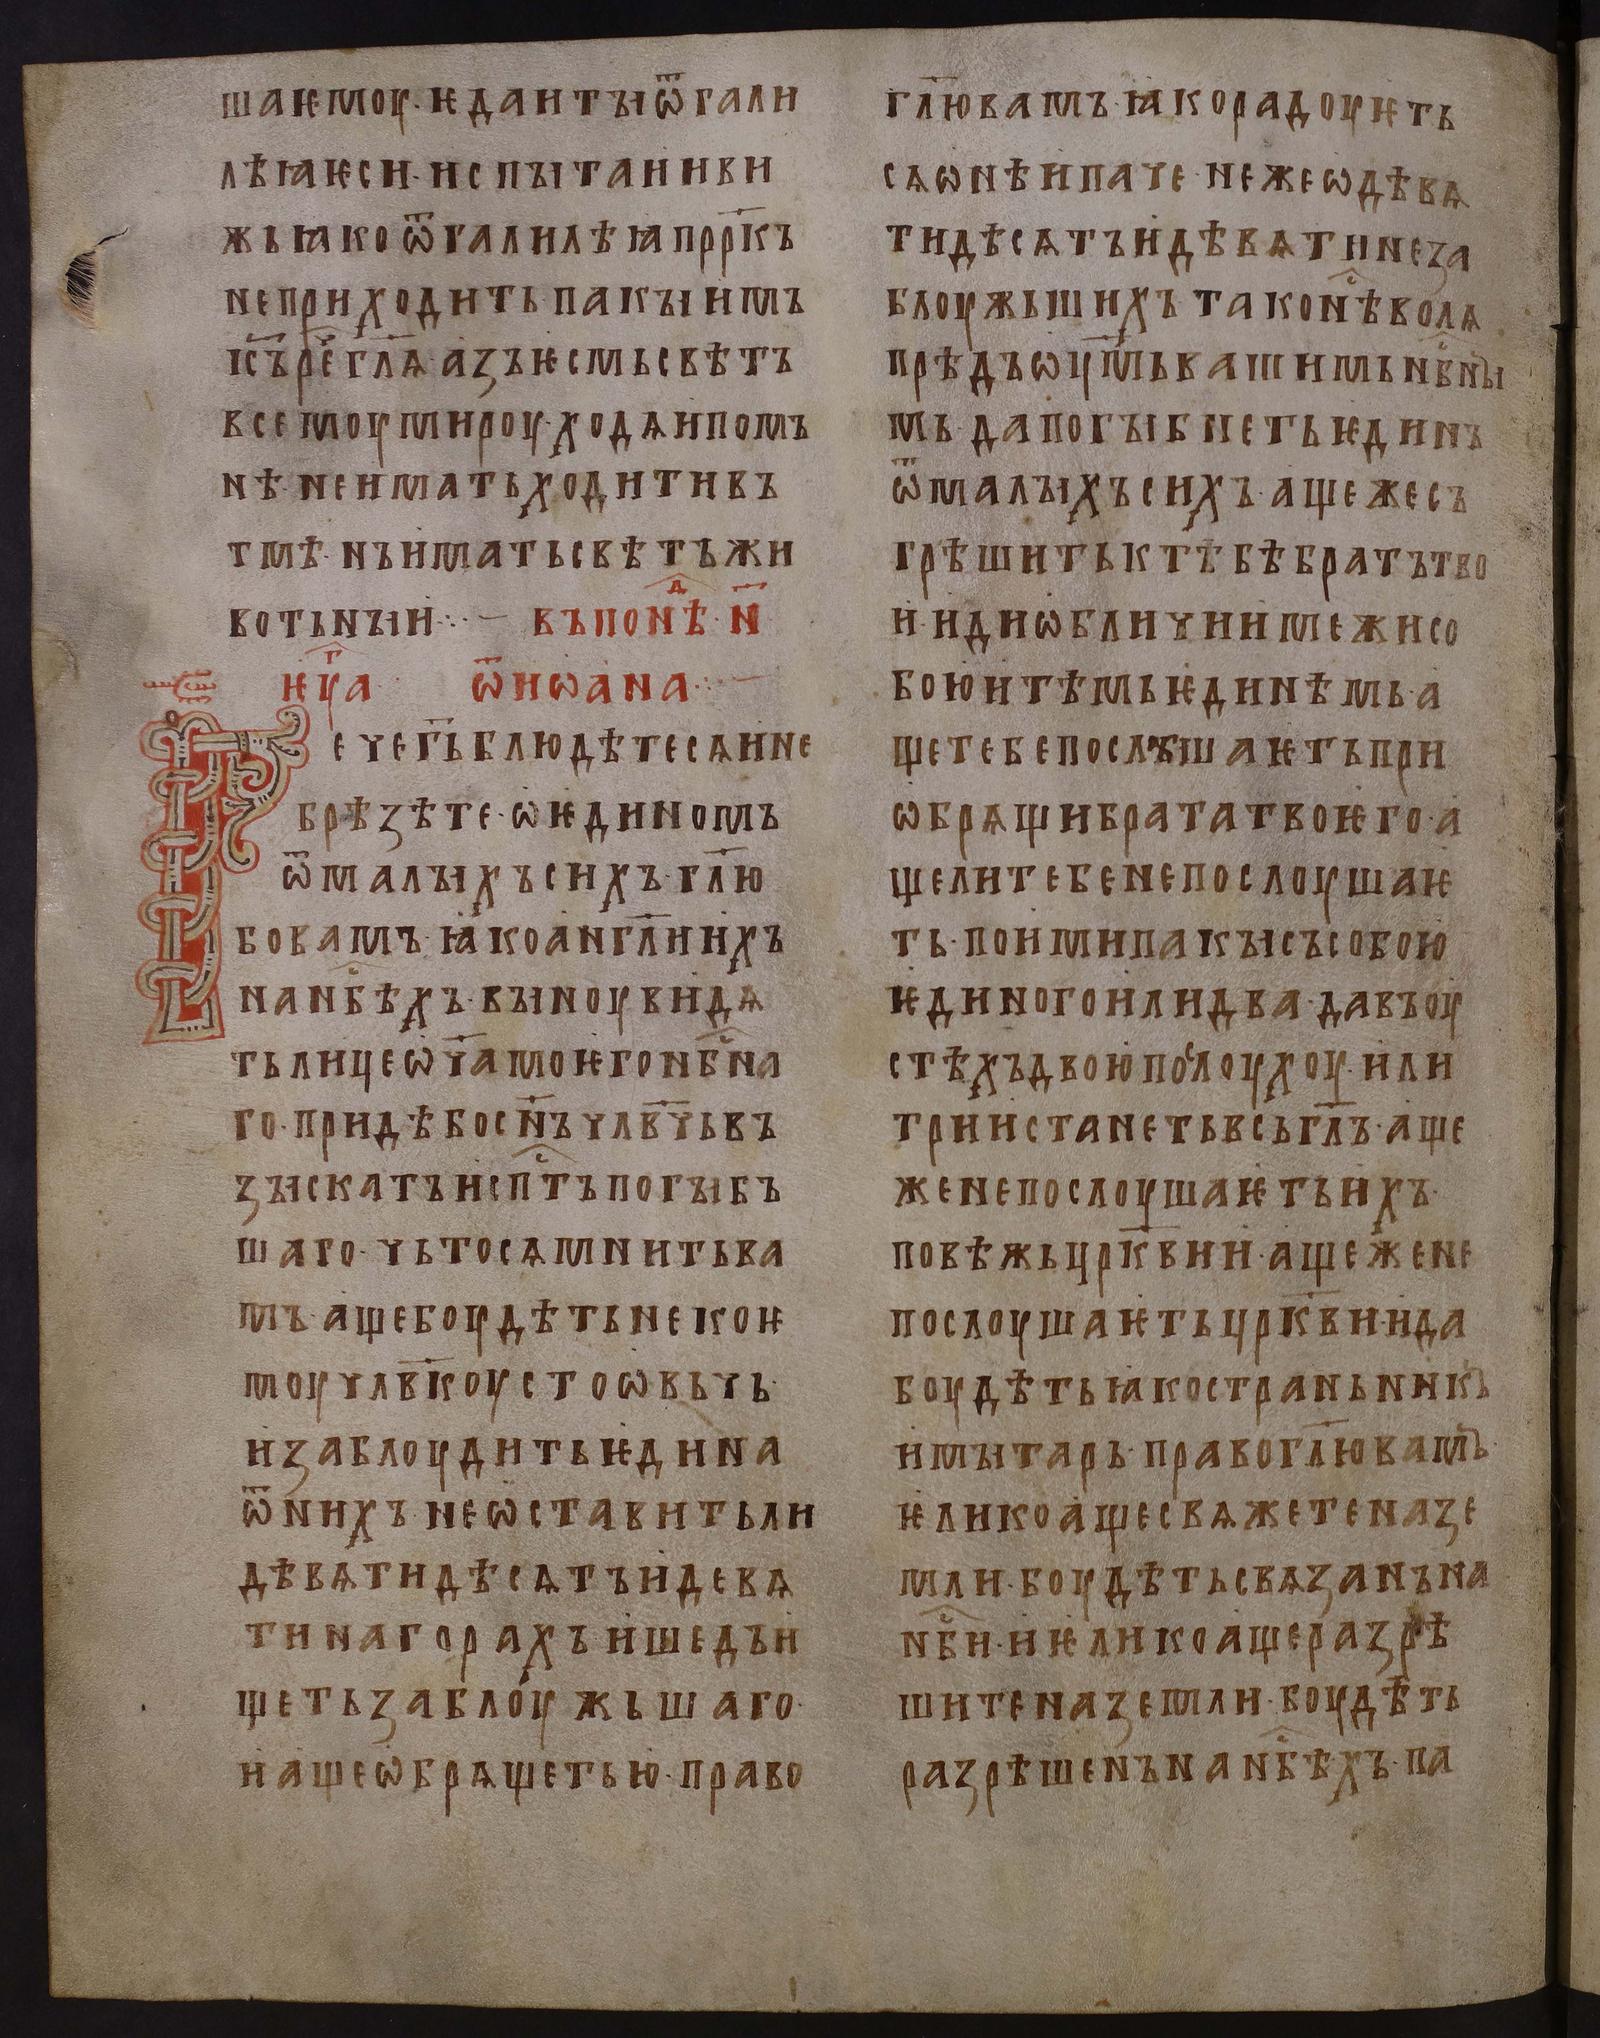 шаѥмоу· ѥда и ты ѿ гали
лѣꙗ ѥси· испытаи и ви
жь ꙗко ѿ галилѣꙗ пррⷪ҇къ
не приходить· пакы имъ
іс҃ъ реⷱ҇ гл҃ѧ· азъ ѥсмь свѣтъ
всемоу мироу· ходѧи по мъ
нѣ· не имать ходити въ
тмѣ· нъ имать свѣтъ жи
вотьныи⁘ — въ понеⷣ҇· н҃
ѥуⷢ҇а ѿ иѡана⁘
Рече г҃ь блюдѣте сѧ и не
брѣзѣте· ѡ ѥдиномъ
ѿ малыхъ сихъ· гл҃ю
бо вамъ· ꙗко анг҃лии ихъ
на нб҃ⷭ҇ѣхъ· выноу видѧ
ть лице ѡц҃а моѥго нбⷭ҇на
го· придѣ бо сн҃ъ чл҃вч҃ь въ
зыскатъ и спⷭ҇тъ погыбъ
шаго· чьто сѧ мнить ва
мъ· аще боудѣть нѣкоѥ
моу чл҃вкоу сто ѡвьчь·
и заблоудить ѥдина
ѿ нихъ· не ѡставить ли
дѣвѧтидѣсѧтъ и девѧ
ти на горахъ и шедъ и
щеть заблоужьшаго·
и аще ѡбрѧщеть ю· право
гл҃ю вамъ· ꙗко радоуѥть
сѧ ѡ нѣи паче· неже ѡ дѣвѧ
тидѣсѧтъ и дѣвѧти не за
блоужьшихъ тако нⷭ҇ѣ волѧ
прѣдъ ѡц҃мь вашимь нбⷭ҇ны
мь· да погыбнеть ѥдинъ
ѿ малыхъ сихъ· аще же съ
грѣшить к тѣбѣ братъ тво
и· иди ѡбличи и межи со
бою и тѣмь ѥдинѣмь· а
ще тебе послꙋшаѥть при
ѡбрѧщи брата твоѥго· а
ще ли тебе не послоушаѥ
ть· поими пакы съ собою
ѥдиного или два· да въ оу
стѣхъ двою послоухоу· или
трии станеть всь гл҃ъ· аще
же не послоушаѥть ихъ·
повѣжь црк҃вии· аще же не
послоушаѥть црк҃ви· и да
боудѣть ꙗко страньникъ
и мытарь· право гл҃ю вамъ·
ѥлико аще свѧжете на зе
мли· боудѣть свѧзанъ на
нбⷭ҇и· и ѥлико аще разрѣ
шите на земли· боудѣть
разрѣшенъ на нбⷭ҇ѣхъ· па